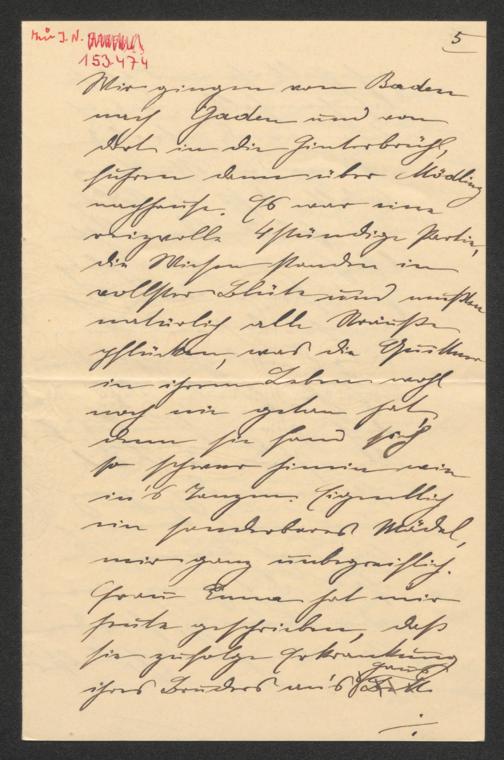 5
I. N.
153.474
Wir gingen von Baden
nach Gaden und von
dort in die Hinterbrühl,
fuhren dann über Mödling
nachhause. Es war eine
reizvolle 4stündige Partie,
die Wiesen standen in
vollster Blüte und mußten
natürlich alle Sträuße
pflücken, was die
in ihrem Leben wohl
noch nie getan hat,
denn sie fand sich
so schwer hinein wie
in's Tanzen. Eigentlich
ein sonderbares Mädel,
mir ganz unbegreiflich.
Frau Emma hat mir
heute geschrieben, daß
sie zufolge Erkrankung
ihres Bruders an's Haus
./.